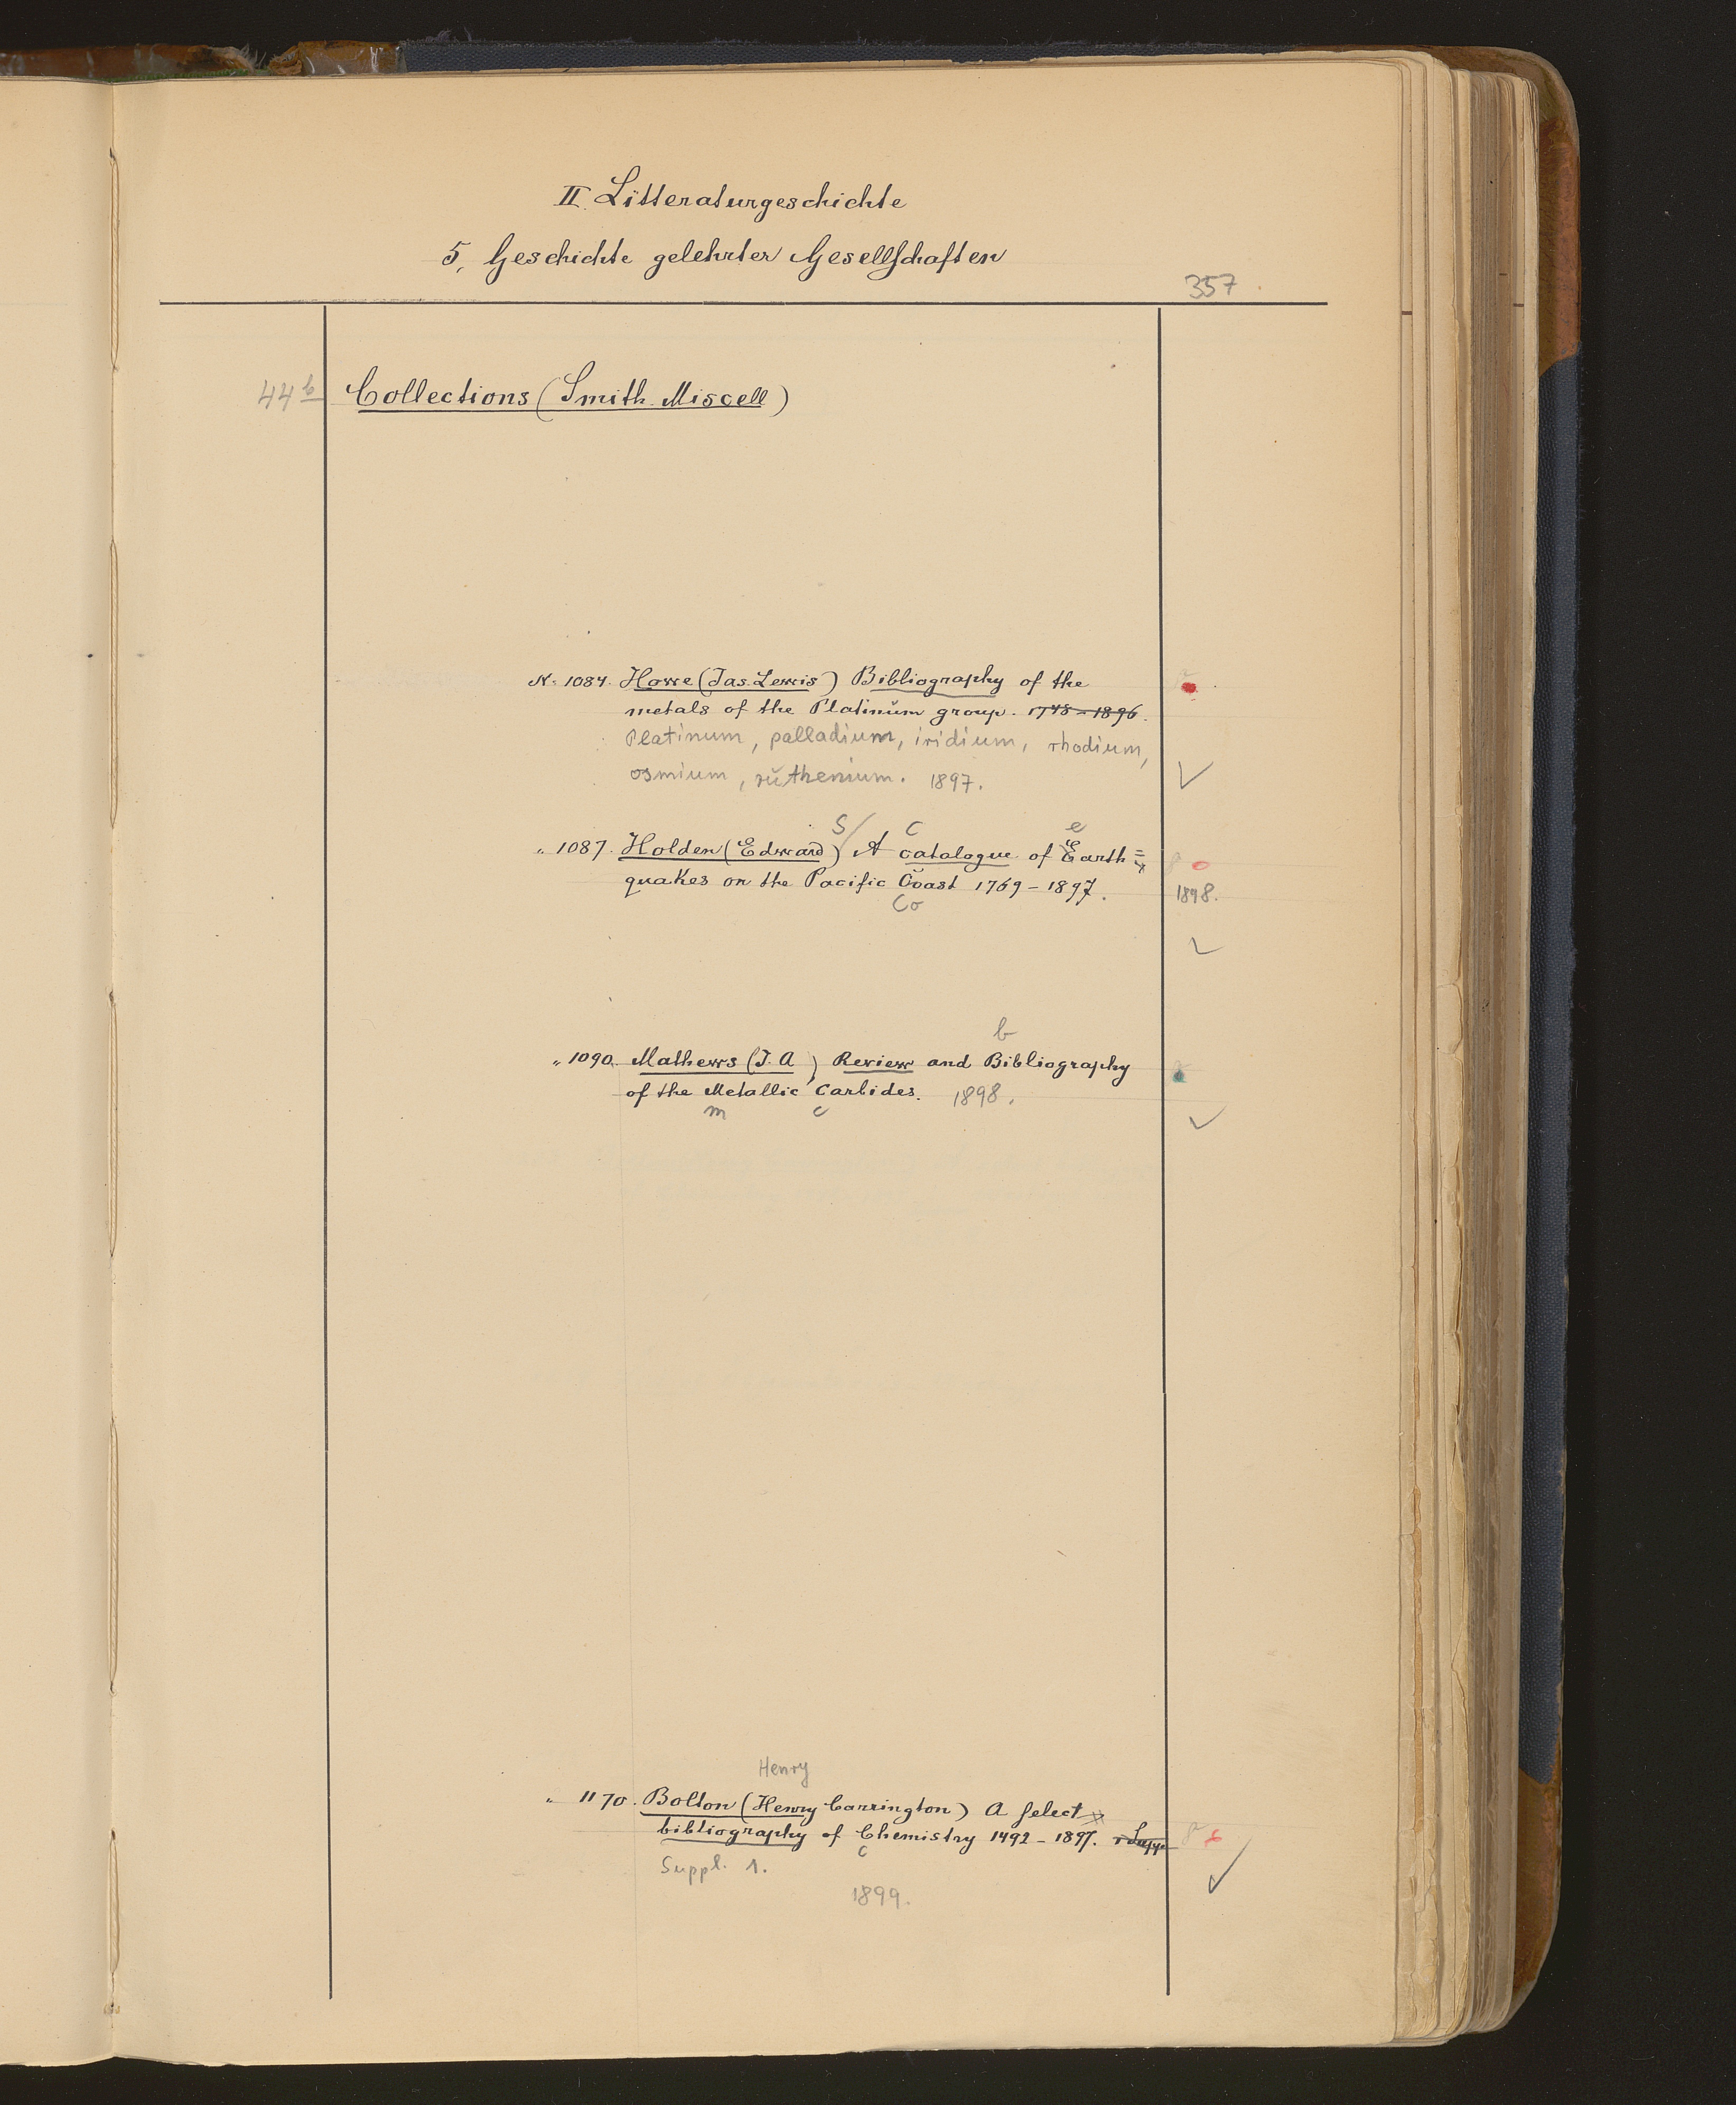 II. Litteraturgeschichte
5. Geschichte gelehrter Gesellschaften
357
44 b Collections (Smith. Miscell)
N. 1084. Howe (Jas. Lewis) Bibliography of the
metals of the Platinum group. 1748-1896.
Platinum, palladium, iridium, rhodium,
osmium, ruthenium. 1897.
S C e
" 1087. Holden (Edward) A catalogue of Earth=
quakes on the Pacific Coast 1769-1897.
1898.
Co
b
" 1090. Mathews (J. A) Review and Bibliography
of the Metallic Carbides. 1898.
m c
Henry
" 1170. Bolton (Henry Carrington) A select
bibliography of Chemistry 1492-1897.
c
Suppl. 1.
1899.